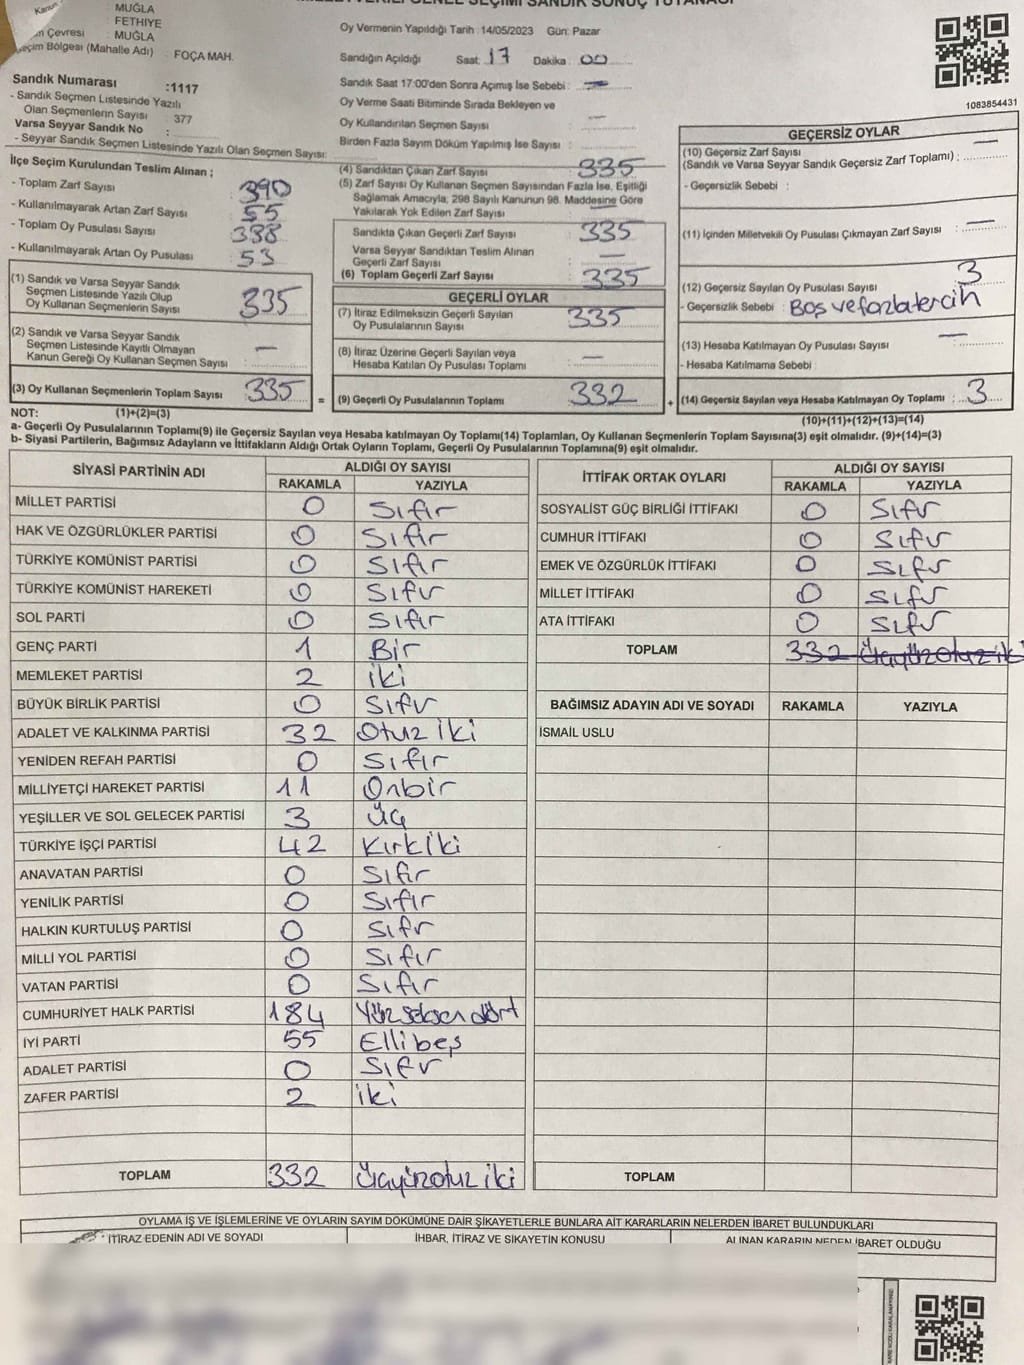 MİLLETVEKİLİ GENEL SEÇİMİ SANDIK SONUÇ TUTANAĞI
Kanun
MUĞLA
FETHİYE
Çevresi : MUĞLA
Seçim Bölgesi (Mahalle Adı) : FOÇA MAH.
Sandık Numarası :1117
- Sandık Seçmen Listesinde Yazılı
Olan Seçmenlerin Sayısı : 377
Varsa Seyyar Sandık No :
- Seyyar Sandık Seçmen Listesinde Yazılı Olan Seçmen Sayısı:
Oy Vermenin Yapıldığı Tarih :14/05/2023 Gün: Pazar
Sandığın Açıldığı Saat: 17 Dakika : 00
Sandık Saat 17:00'den Sonra Açımış İse Sebebi : —
Oy Verme Saati Bitiminde Sırada Bekleyen ve
Oy Kullandırılan Seçmen Sayısı : —
Birden Fazla Sayım Döküm Yapılmış İse Sayısı :
1083854431
İlçe Seçim Kurulundan Teslim Alınan ;
- Toplam Zarf Sayısı : 390
- Kullanılmayarak Artan Zarf Sayısı : 55
- Toplam Oy Pusulası Sayısı : 388
- Kullanılmayarak Artan Oy Pusulası : 53
(1) Sandık ve Varsa Seyyar Sandık
Seçmen Listesinde Yazılı Olup
Oy Kullanan Seçmenlerin Sayısı : 335
(2) Sandık ve Varsa Seyyar Sandık
Seçmen Listesinde Kayıtlı Olmayan
Kanun Gereği Oy Kullanan Seçmen Sayısı : —
(3) Oy Kullanan Seçmenlerin Toplam Sayısı : 335
(4) Sandıktan Çıkan Zarf Sayısı : 335
(5) Zarf Sayısı Oy Kullanan Seçmen Sayısından Fazla İse, Eşitliği
Sağlamak Amacıyla, 298 Sayılı Kanunun 98. Maddesine Göre
Yakılarak Yok Edilen Zarf Sayısı : —
Sandıkta Çıkan Geçerli Zarf Sayısı : 335
Varsa Seyyar Sandıktan Teslim Alınan
Geçerli Zarf Sayısı : —
(6) Toplam Geçerli Zarf Sayısı : 335
GEÇERLİ OYLAR
(7) İtiraz Edilmeksizin Geçerli Sayılan
Oy Pusulalarının Sayısı : 335
(8) İtiraz Üzerine Geçerli Sayılan veya
Hesaba Katılan Oy Pusulası Toplamı : —
= (9) Geçerli Oy Pusulalarının Toplamı : 332
GEÇERSİZ OYLAR
(10) Geçersiz Zarf Sayısı
(Sandık ve Varsa Seyyar Sandık Geçersiz Zarf Toplamı) : —
- Geçersizlik Sebebi :
(11) İçinden Milletvekili Oy Pusulası Çıkmayan Zarf Sayısı : —
(12) Geçersiz Sayılan Oy Pusulası Sayısı : 3
- Geçersizlik Sebebi : Boş ve fazla tercih
(13) Hesaba Katılmayan Oy Pusulası Sayısı : —
- Hesaba Katılmama Sebebi :
+ (14) Geçersiz Sayılan veya Hesaba Katılmayan Oy Toplamı : 3
NOT: (1)+(2)=(3) (10)+(11)+(12)+(13)=(14)
a- Geçerli Oy Pusulalarının Toplamı(9) ile Geçersiz Sayılan veya Hesaba katılmayan Oy Toplamı(14) Toplamları, Oy Kullanan Seçmenlerin Toplam Sayısına(3) eşit olmalıdır. (9)+(14)=(3)
b- Siyasi Partilerin, Bağımsız Adayların ve İttifakların Aldığı Ortak Oyların Toplamı, Geçerli Oy Pusulalarının Toplamına(9) eşit olmalıdır.
SİYASİ PARTİNİN ADI ALDIĞI OY SAYISI
RAKAMLA YAZIYLA
MİLLET PARTİSİ 0 Sıfır
HAK VE ÖZGÜRLÜKLER PARTİSİ 0 Sıfır
TÜRKİYE KOMÜNİST PARTİSİ 0 Sıfır
TÜRKİYE KOMÜNİST HAREKETİ 0 Sıfır
SOL PARTİ 0 Sıfır
GENÇ PARTİ 1 Bir
MEMLEKET PARTİSİ 2 iki
BÜYÜK BİRLİK PARTİSİ 0 Sıfır
ADALET VE KALKINMA PARTİSİ 32 Otuz iki
YENİDEN REFAH PARTİSİ 0 Sıfır
MİLLİYETÇİ HAREKET PARTİSİ 11 Onbir
YEŞİLLER VE SOL GELECEK PARTİSİ 3 Üç
TÜRKİYE İŞÇİ PARTİSİ 42 Kırkiki
ANAVATAN PARTİSİ 0 Sıfır
YENİLİK PARTİSİ 0 Sıfır
HALKIN KURTULUŞ PARTİSİ 0 Sıfır
MİLLİ YOL PARTİSİ 0 Sıfır
VATAN PARTİSİ 0 Sıfır
CUMHURİYET HALK PARTİSİ 184 Yüzseksen dört
İYİ PARTİ 55 Ellibeş
ADALET PARTİSİ 0 Sıfır
ZAFER PARTİSİ 2 iki
TOPLAM 332 Üçyüzotuz iki
İTTİFAK ORTAK OYLARI ALDIĞI OY SAYISI
RAKAMLA YAZIYLA
SOSYALİST GÜÇ BİRLİĞİ İTTİFAKI 0 Sıfır
CUMHUR İTTİFAKI 0 Sıfır
EMEK VE ÖZGÜRLÜK İTTİFAKI 0 Sıfır
MİLLET İTTİFAKI 0 Sıfır
ATA İTTİFAKI 0 Sıfır
TOPLAM 332 Üçyüzotuz iki
BAĞIMSIZ ADAYIN ADI VE SOYADI RAKAMLA YAZIYLA
İSMAİL USLU
TOPLAM
OYLAMA İŞ VE İŞLEMLERİNE VE OYLARIN SAYIM DÖKÜMÜNE DAİR ŞİKAYETLERLE BUNLARA AİT KARARLARIN NELERDEN İBARET BULUNDUKLARI
İTİRAZ EDENİN ADI VE SOYADI İHBAR, İTİRAZ VE ŞİKAYETİN KONUSU ALINAN KARARIN NEDEN İBARET OLDUĞU